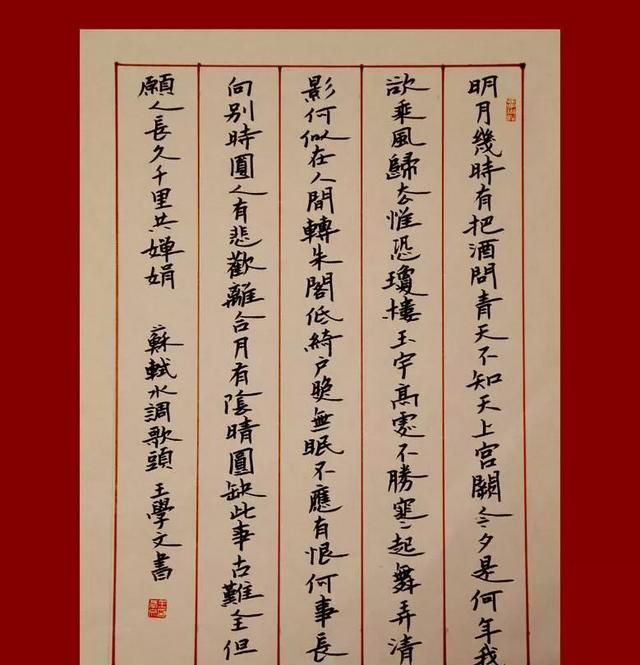 明月幾時有把酒問青天不知天上宮闕今夕是何年我
欲乘風歸去惟恐瓊樓玉宇高處不勝寒起舞弄清
影何似在人間轉朱閣低綺户晚無眠不應有恨何事長
向別時圓人有悲歡離合月有陰晴圓缺此事古難全但
願人長久千里共嬋娟 蘇軾水調歌頭 王學文書